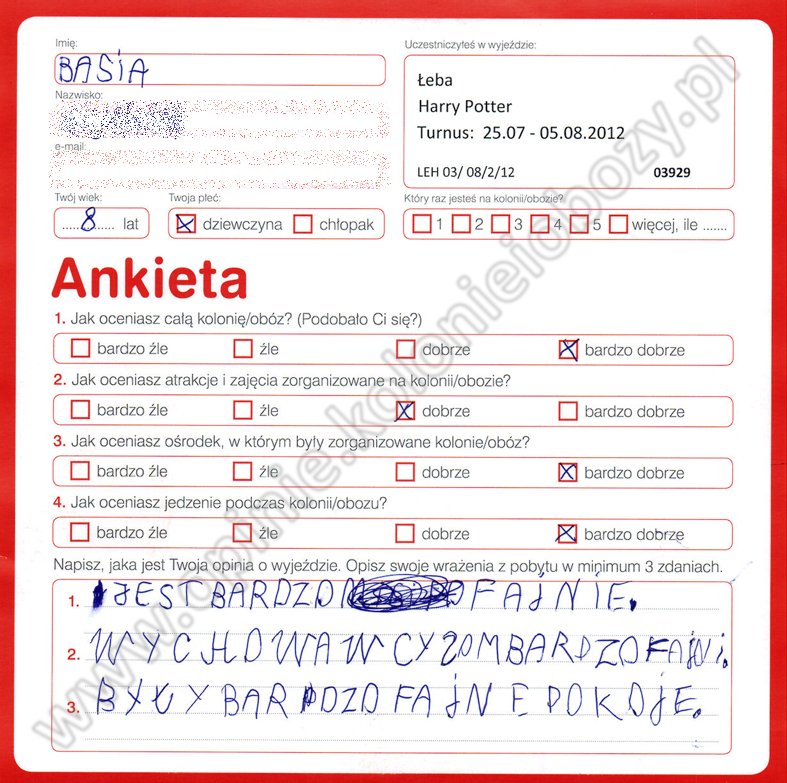 Imię:
BASIA
Uczestniczyłeś w wyjeździe:
Łeba
Harry Potter
Turnus: 25.07 - 05.08.2012
LEH 03/ 08/2/12 03929
Nazwisko:
e-mail:
Twój wiek: Twoja płeć: Który raz jesteś na kolonii/obozie?
.....8..... lat dziewczyna chłopak 1 2 3 4 5 więcej, ile .......
Ankieta
1. Jak oceniasz całą kolonię/obóz? (Podobało Ci się?)
bardzo źle źle dobrze bardzo dobrze
2. Jak oceniasz atrakcje i zajęcia zorganizowane na kolonii/obozie?
bardzo źle źle dobrze bardzo dobrze
3. Jak oceniasz ośrodek, w którym były zorganizowane kolonie/obóz?
bardzo źle źle dobrze bardzo dobrze
4. Jak oceniasz jedzenie podczas kolonii/obozu?
bardzo źle źle dobrze bardzo dobrze
Napisz, jaka jest Twoja opinia o wyjeździe. Opisz swoje wrażenia z pobytu w minimum 3 zdaniach.
1. JEST BARDZO FAJNIE.
2. WYCHOWAWCY ZOM BARDZO FAJNI.
3. BYŁY BARDZO FAJNE POKOJE.
www.opinie.kolonieiobozy.pl